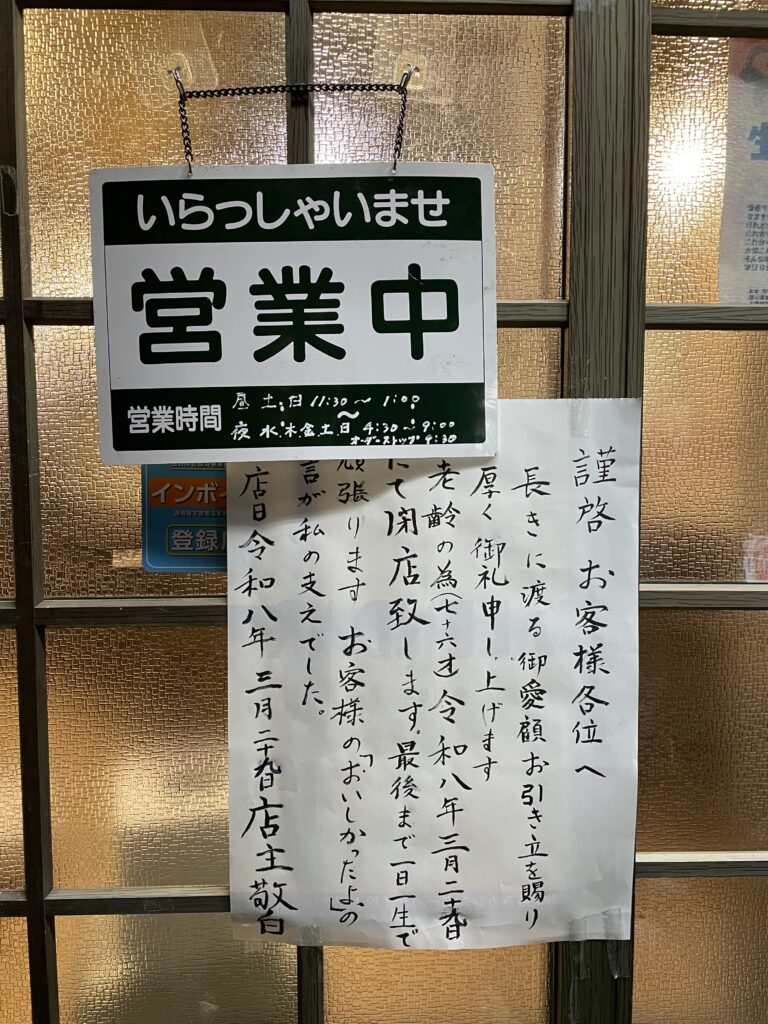 いらっしゃいませ
営業中
営業時間
昼 土;日 11:30〜1:00
〜
夜 水木金土日 4:30〜9:00
オーダーストップ
インボイ
登録
謹啓 お客様各位へ
長きに渡る御愛顧お引き立を賜り
厚く御礼申し上げます
老齢の為(七十六才)令和八年三月二十九日
にて閉店致します。最後まで一日一生で
頑張ります お客様の「おいしかったよ」の
言が私の支えでした。
店日令和八年三月二十九日店主敬白